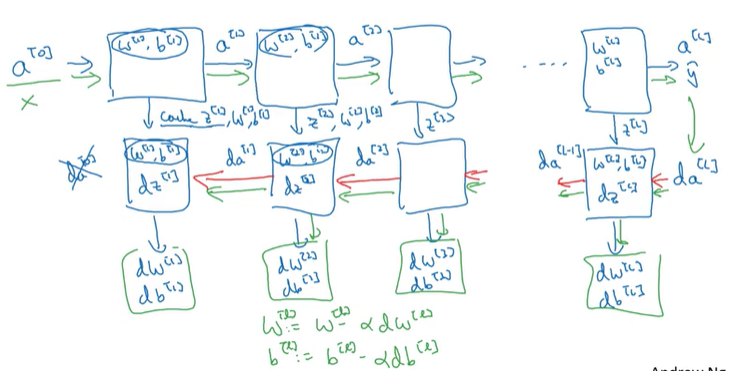 a^[0]
x
w^[1], b^[1]
a^[1]
w^[2], b^[2]
a^[2]
....
w^[L]
b^[L]
a^[L]
ŷ
cache z^[1], w^[1], b^[1]
z^[2], w^[2], b^[2]
z^[3]
z^[L]
da^[0]
w^[1], b^[1]
dz^[1]
da^[1]
w^[2], b^[2]
dz^[2]
da^[2]
da^[L-1]
w^[L], b^[L]
dz^[L]
da^[L]
dw^[1]
db^[1]
dw^[2]
db^[2]
dw^[3]
db^[3]
dw^[L]
db^[L]
w^[l] := w^[l] - αdw^[l]
b^[l] := b^[l] - αdb^[l]
Andrew Ng